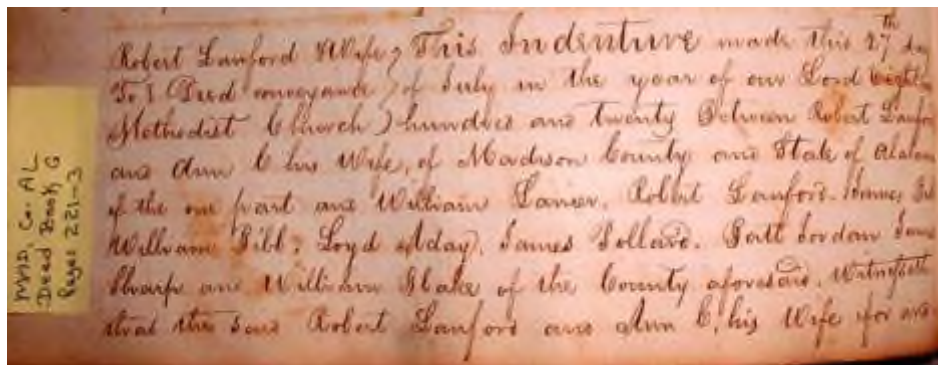 MAD. Co. AL
Deed Book G
Pages 221-3
Robert Lanford & Wife } This Indenture made this 27th day
To } Deed conveyance } of July in the year of our Lord
Methodist Church } hundred and twenty Between Robert Lanford
and Ann C his Wife, of Madison County and State of
of the one part and William Lanier, Robert Lanford,
William Bibb, Loyd Aday, James Pollard, Batt Jordan
Sharp and William Blake of the County aforesaid, Witnesseth
that the said Robert Lanford and Ann C, his Wife for and